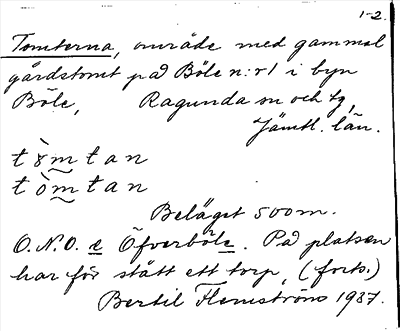 1-2.
Tomterna, område med gammal
gårdstomt på Böle n:r 1 i byn
Böle, Ragunda sn och tg,
Jämtl. län.
t ꝏ̀ m t a n
t ò m t a n
Beläget 500 m.
O.N.O. e Öfverböle. På platsen
har för stått ett torp, (forts.)
Bertil Flemström 1937.